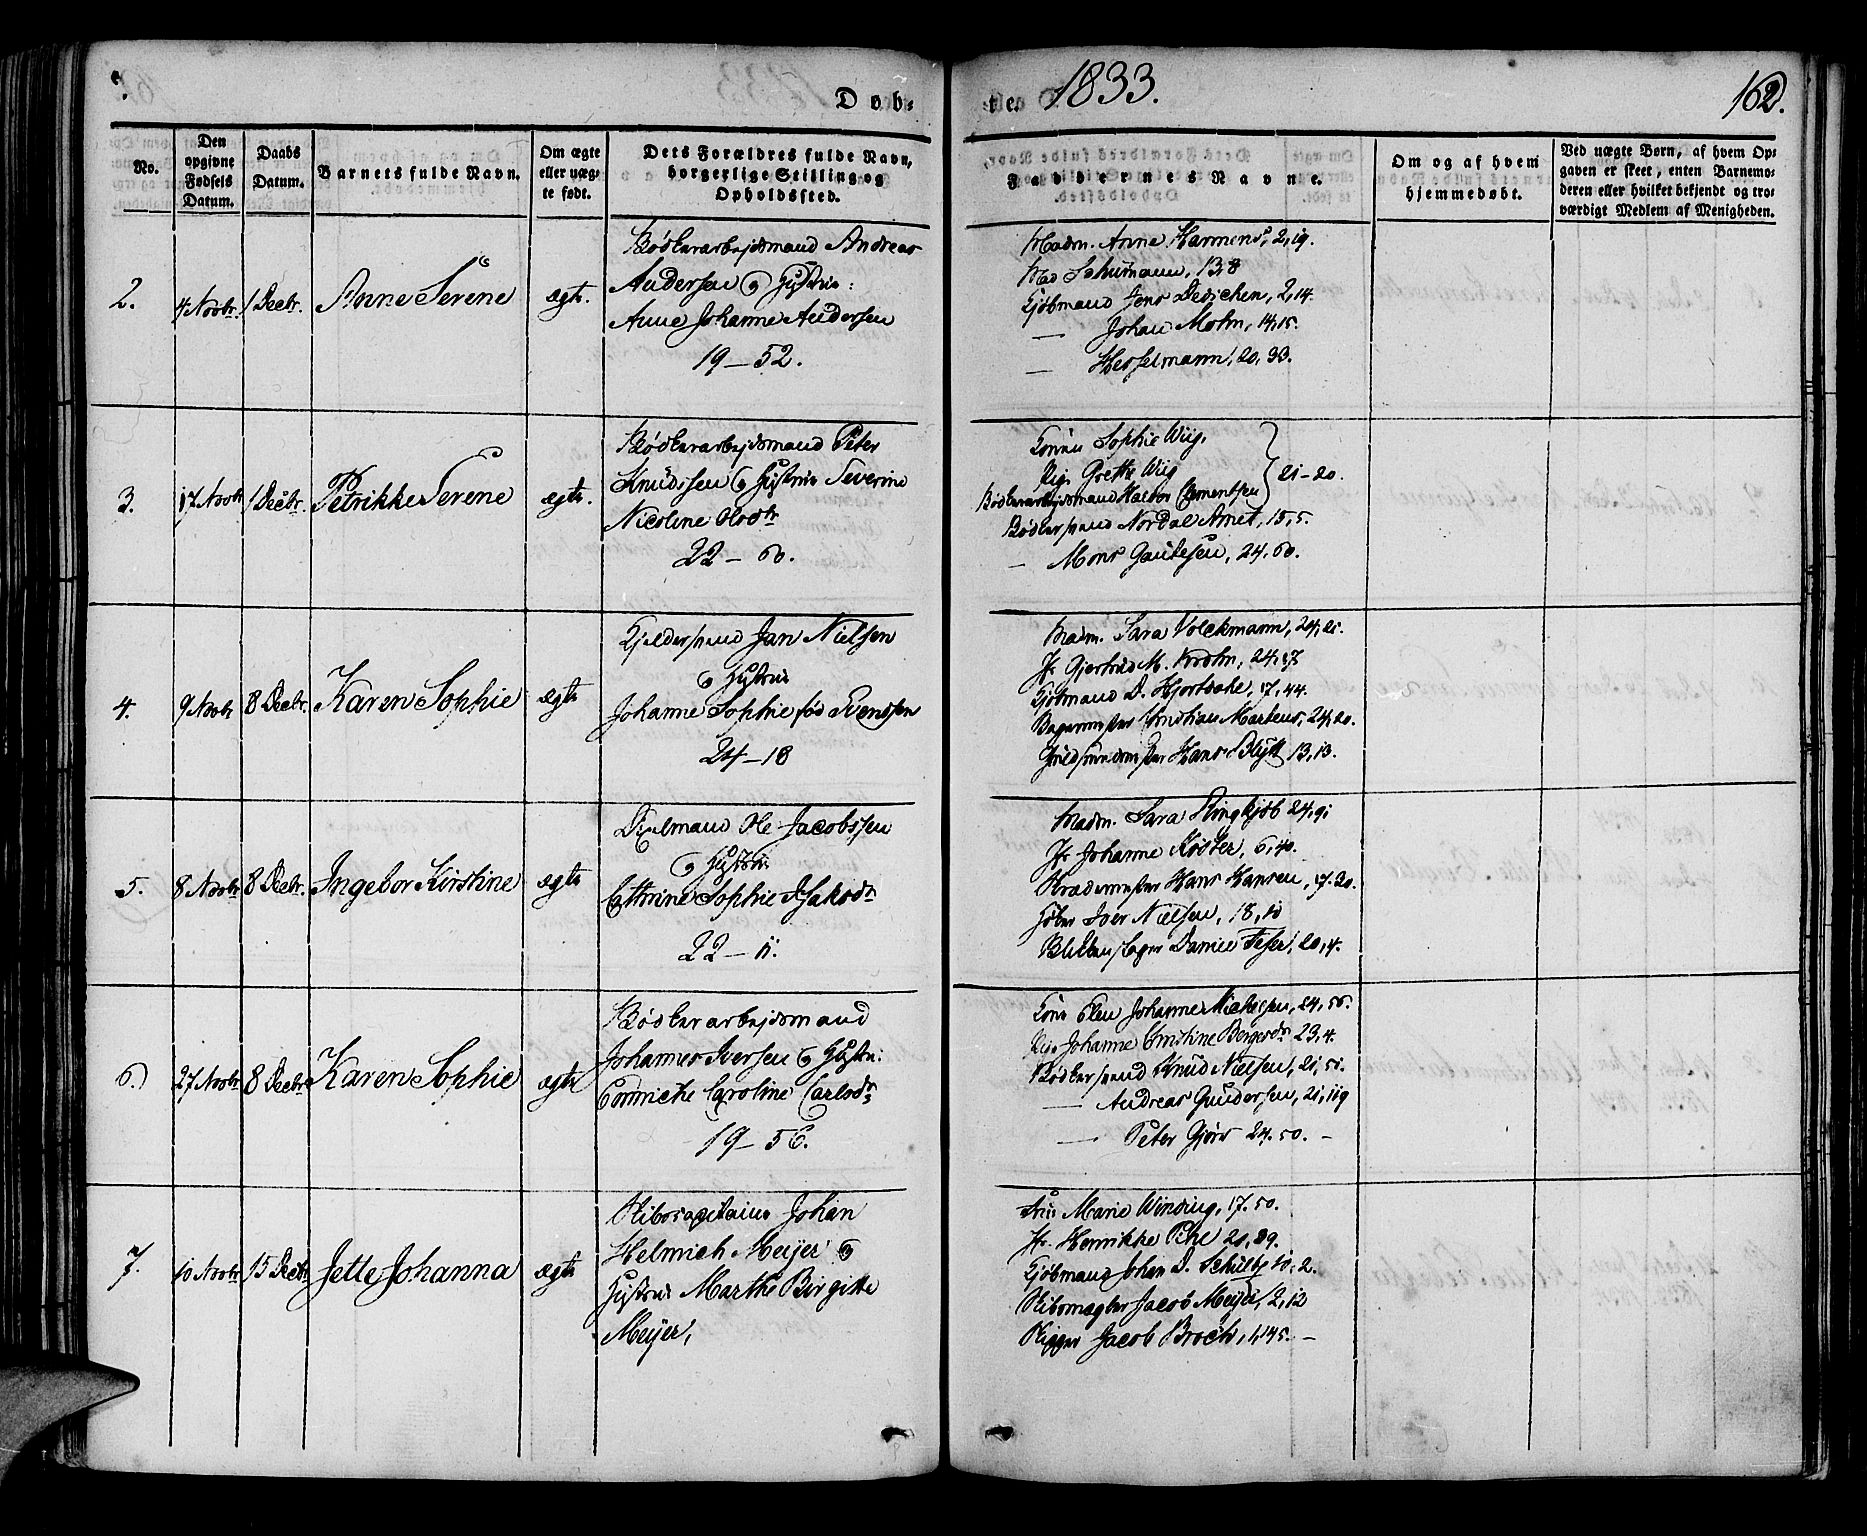 Døb-
te. 1833.
162.
No.
Den opgivne Fødsels Datum.
Daabs Datum.
Barnets fulde Navn.
Om ægte eller uæg-
te født.
Dets Forældres fulde Navn,
borgerlige Stilling og
Opholdssted.
Faddernes Navne.
Om og af hvem
hjemmedøbt.
Ved uægte Børn, af hvem Op-
gaven er skeet, enten Barnemo-
deren eller hvilket bekjendt og tro-
værdigt Medlem af Menigheden.
2. 4 Novbr. 1 Decbr. Anne Serene ægte.
Bødkerarbejdsmand Andreas
Andersen og Hustrue:
Anne Johanne Andersen
19-52.
Madm. Anne Harmens, 2,19.
Mad Schumann, 13,8
Kjøbmand Jens Dedichen, 2,14.
— Johan Mohn, 14,15.
— Hesselmann, 20,33.
3. 17 Novbr 1 Decbr. Petrikke Serene ægte.
Bødkerarbejdsmand Peter
Knudssen og Hustrue Severine
Nicoline Olsdtr
22-60.
Konen Sophie Wiig,
Pig. Grethe Wiig
Bødkerarbejdsmand Halvor Clementsen } 21-20.
Bødkersvend Nordal Arnet, 15,5.
— Mons Gautesen, 24,60.
4. 9 Novbr 8 Decbr. Karen Sophie ægte
Jan Nielsen
og Hustrue
Johanne Sophie fød Svendsen
24-18
Madm. Sara Volckmann, 24,21.
Jfr Gjertrud M. Krohn, 24,17
Kjøbmand D. Hjortdahl, 17,44.
Bagermester Christian Martens, 24,20.
Guldsmedmester Hans Blytt 13,13.
5. 8 Novbr 8 Decbr. Ingebor Kirstine ægte
Ole Jacobssen
og Hustrue
Cathrine Sophie Isaksdtr
22-11.
Madm. Sara Ringkjøb 24,91
Jfr Johanne Köster, 6,40.
Hans Hansen, 17.30.
Iver Nielsen, 18,10
Blikkenslager Daniel Feser, 20,4.
6. 27 Novbr 8 Decbr Karen Sophie ægte
Bødkerarbejdsmand
Johannes Iversen og Hustru:
Caroline Carlsdtr
19-56.
Kone Elen Johanne Michelsen, 24,56.
Pige Johanne Christine Bergersdtr 23,4.
Bødkersvend Knud Nielsen, 21,51.
— Andreas Gundersen, 21,119
— Peter Gjørs 24.50. —
7. 10 Novbr 15 Decbr Jette Johanna ægte
Skibscapitaine Johan
Helmich Meijer og
Hustrue Marthe Birgitte
Meijer,
Frue Marie Winding, 17.50.
Jfr. Henrikke Pihl 21,29.
Kjøbmand Johan D. Schultz 10,2.
Skibsmægler Jacob Meijer, 2,12
Skipper Jacob Broch, 1,145. —